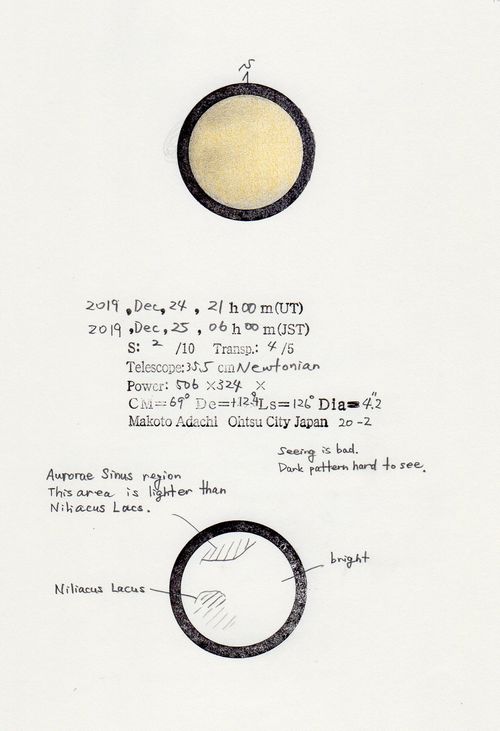 N
2019, Dec, 24, 21 h 00 m (UT)
2019, Dec, 25, 06 h 00 m (JST)
S: 2 /10 Transp.: 4 /5
Telescope: 35.5 cm Newtonian
Power: 506 × 324 ×
CM= 69° De=+12.4° Ls= 126° Dia= 4.2"
Makoto Adachi Ohtsu City Japan 20-2
Seeing is bad.
Dark pattern hard to see.
Aurorae Sinus region
This area is lighter than
Niliacus Lacs.
bright
Niliacus Lacus